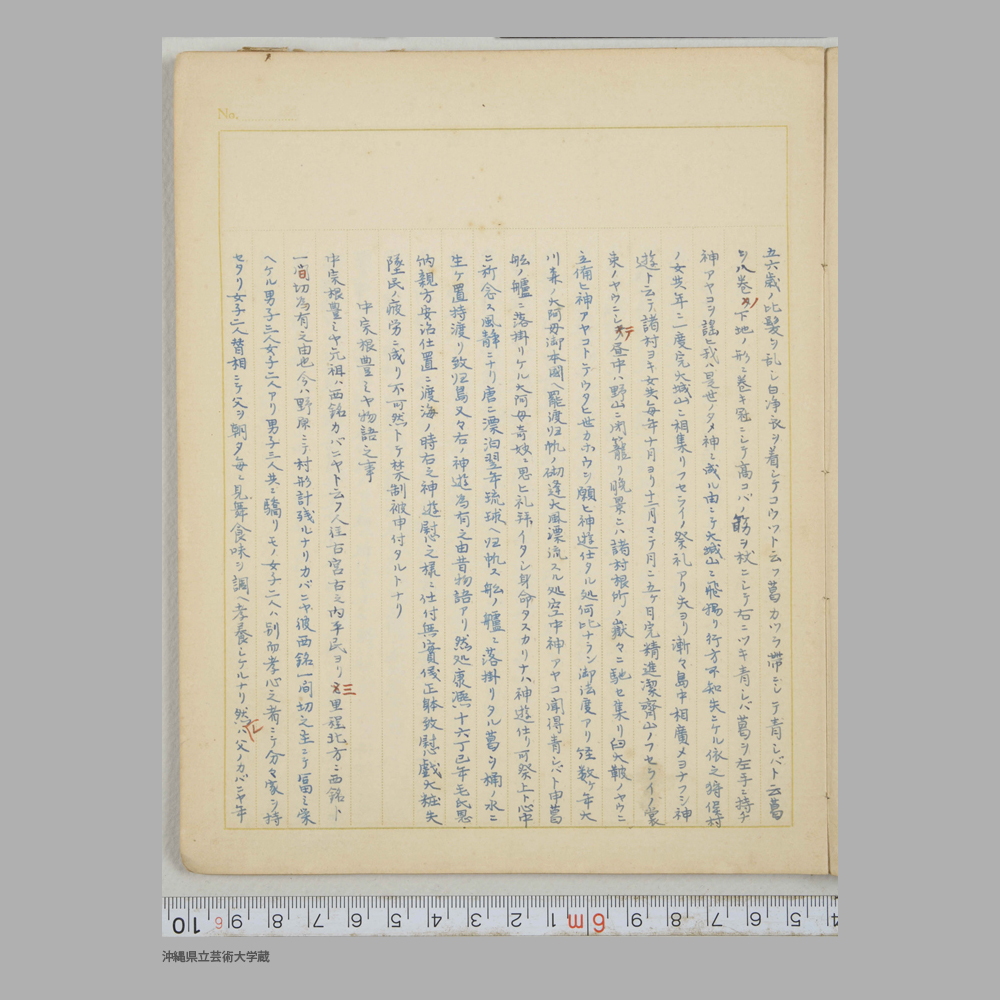 No.
五六歳ノ比髪ヲ乱シ白浄衣ヲ着シテコウツト云フ葛カツラ帯ニシテ青シバト云葛
ヲ八巻ノ下地ノ形ニ巻キ冠ニシテ高コバノ筋ヲ杖ニシテ右ニツキ青シバ葛ヲ左手ニ持チ
神アヤコヲ謡ヒ我ハ是世ノタメ神ニ成ル由ニテ大城山ニ飛揚リ行方不知失ニケル依之狩俣村
ノ女共年ニ一度完大城山ニ相集リフセライノ祭礼アリ夫ヨリ漸々島中相廣メヨナフシ神
遊ト云テ諸村ヨキ女共毎年十月ヨリ十二月マテ月ニ五ケ日完精進潔齋山ノフセライノ裳
束ノヤウニシテ昼中ハ野山ニ閉籠リ晩景ニハ諸村根所ノ嶽々ニ馳セ集リ臼太皷ノヤウニ
立備ヒ神アヤコトテウタヒ世カホウヲ願ヒ神遊仕タル処何比ナラン御法度アリ 數ケ年大
川森ノ大阿母御本國ヘ罷渡リ归帆ノ砌逢大風漂流スル処空中神アヤコ聞得青シバト申葛
舩ノ艫ニ落掛リケル大阿母奇妙ニ思ヒ礼拝イタシ身命タスカリナハ神遊仕リ可祭上ト心中
ニ祈念ス風静ニナリ唐ニ漂泊翌年琉球ヘ归帆ス舩ノ艫ニ落掛リタル葛ヲ桶ノ水ニ
生ケ置持渡リ致归島又々右ノ神遊為有之由昔物語アリ然処康凞十六丁巳年毛氏恩
納親方安治仕置ニ渡海ノ時右之神遊慰之様ニ仕付無實儀正躰致慰戯大粧失
墜民ノ疲労ニ成リ不可然トテ禁制被申付タルトナリ
中宗根豊ミヤ物語之事
中宗根豊ミヤ元祖ハ西銘カバニヤト云フ人住古宮古之内平民ヨリ三里程北方ニ西銘ト
一間切為有之由也今ハ野原ニテ村形計残ルナリカバニヤ彼西銘一間切之主ニテ冨ミ栄
ヘケル男子三人女子二人アリ男子三人共ニ驕リモノ女子二人ハ別而孝心之者ニテ分々家ヲ持
セタリ女子二人替相ニテ父ヲ朝夕毎ニ見舞食味ヲ調ヘ孝養シケルナリ然ハ父ノカバニヤ年
10 6 9 8 7 6 5 4 3 2 1 6m 9 8 7 6 5 4
沖縄県立芸術大学蔵